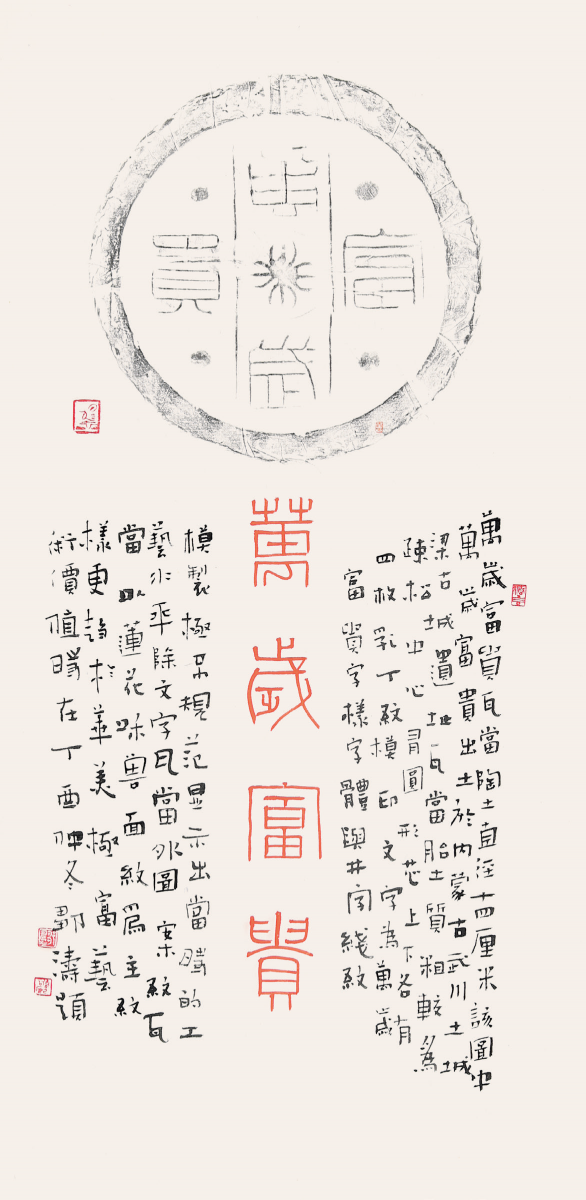 萬歲
富貴
萬歲富貴瓦當陶土直径十四厘米該圖中
萬歲富貴出土於内蒙古武川土城
梁古城遺址瓦當胎土質粗較為
疎松中心有圓形芯上下各有
四枚乳丁紋模印文字為萬歲
富貴字樣字體與井字綫紋
萬歲富貴
模製極不規范显示出當時的工
藝水平除文字瓦當外圖案紋瓦
當以蓮花和獸面紋爲主紋
樣更趋於華美極富藝
術價值時在丁酉仲冬鄒濤題